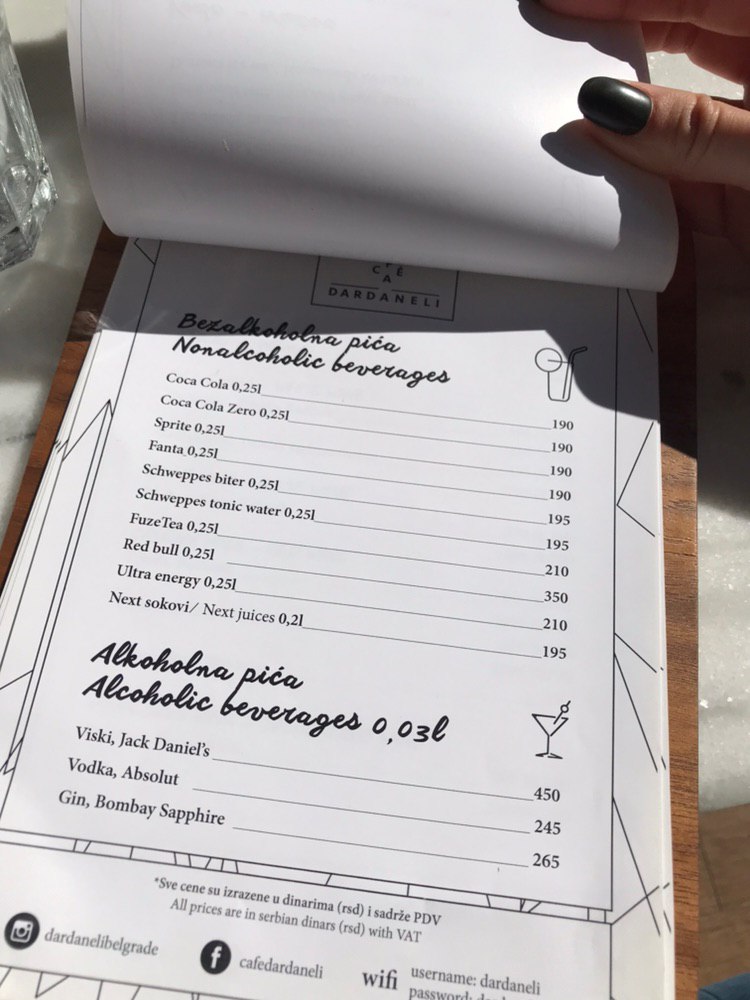 C F É
A
DARDANELI
Bezalkoholna pića
Nonalcoholic beverages
Coca Cola 0,25l 190
Coca Cola Zero 0,25l 190
Sprite 0,25l 190
Fanta 0,25l 190
Schweppes biter 0,25l 195
Schweppes tonic water 0,25l 195
FuzeTea 0,25l 210
Red bull 0,25l 350
Ultra energy 0,25l 210
Next sokovi/ Next juices 0,2l 195
Alkoholna pića
Alcoholic beverages 0,03l
Viski, Jack Daniel's 450
Vodka, Absolut 245
Gin, Bombay Sapphire 265
*Sve cene su izrazene u dinarima (rsd) i sadrže PDV
All prices are in serbian dinars (rsd) with VAT
dardanelibelgrade
cafedardaneli
wifi
username: dardaneli
password: